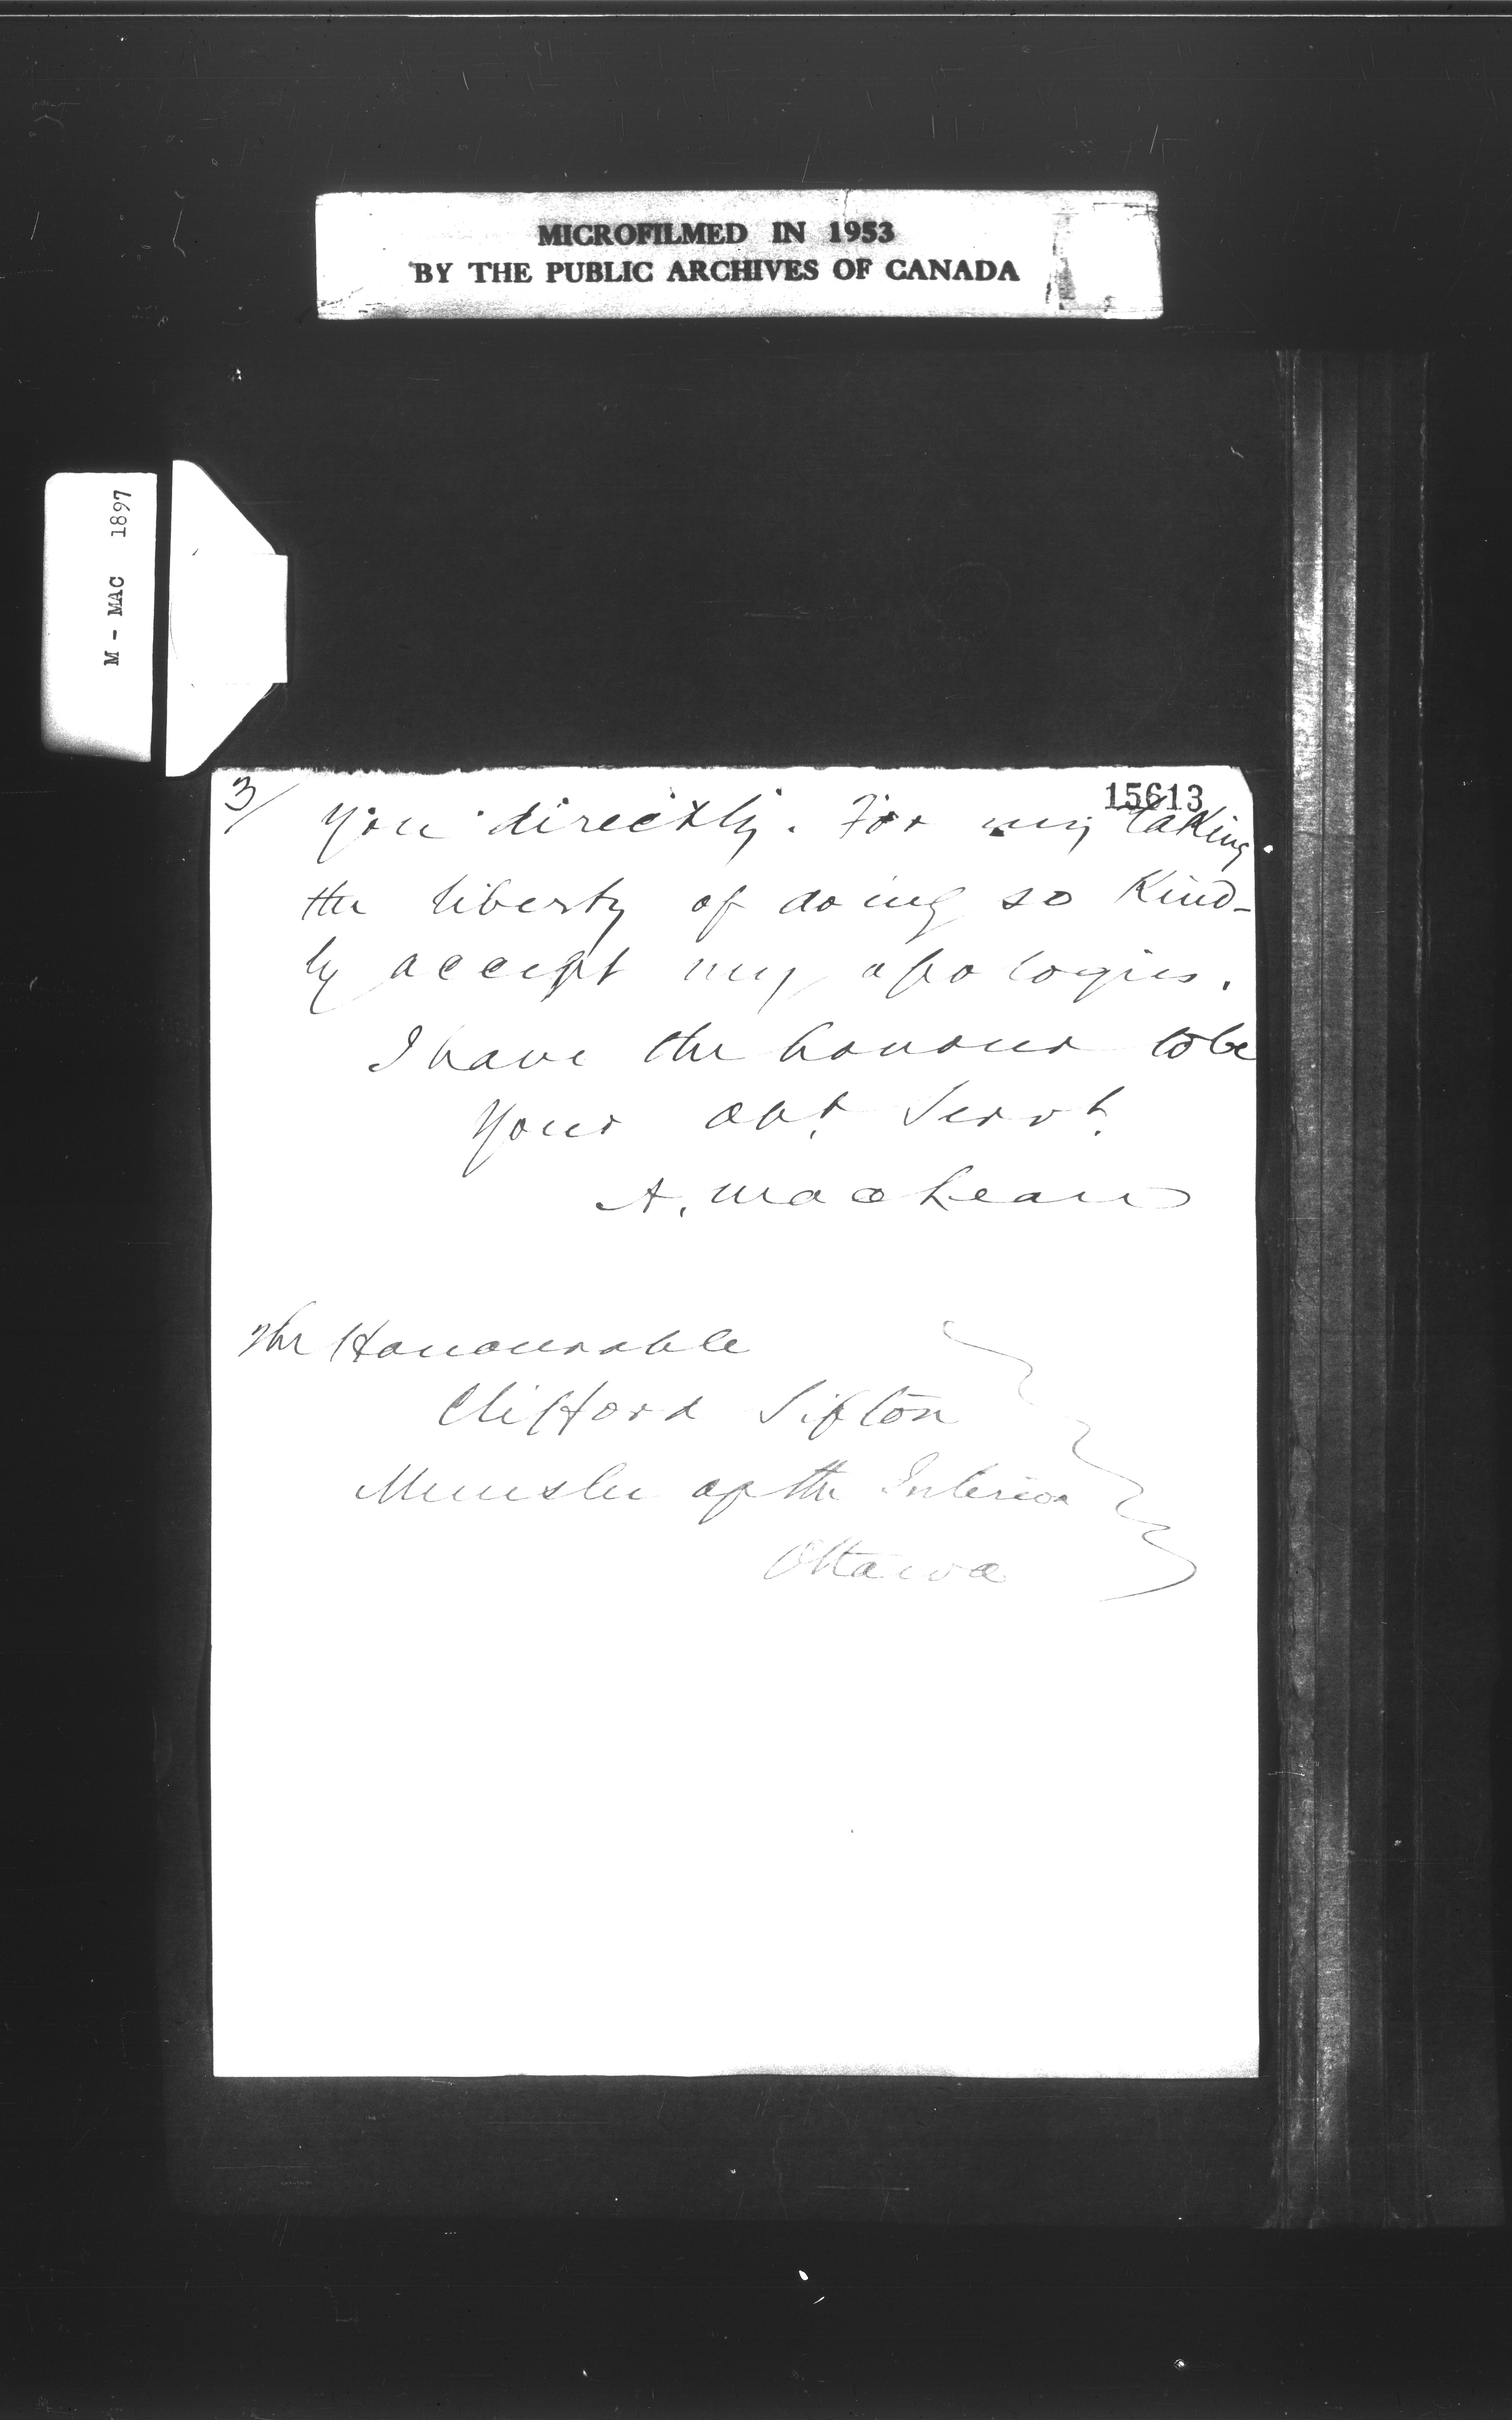 MICROFILMED IN 1953
BY THE PUBLIC ARCHIVES OF CANADA
M - MAC 1897
15613
3/ you directly. For my taking
the liberty of doing so Kind-
ly accept my apologies.
I have the honour to be
Your obt. Servt.
A. MacLean
The Honourable
Clifford Sifton
Minister of the Interior
Ottawa